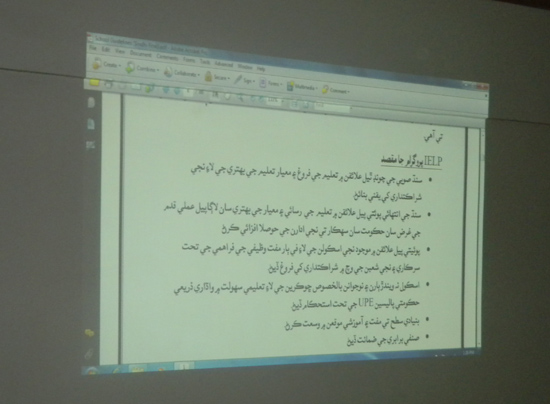 File Edit View Document Comments Forms Tools Advanced Window Help
Create Combine Collaborate Secure Sign Forms Multimedia Comment
تي آهي
IELP پروگرام جا مقصد
• سنڌ صوبي جي چونڊ ٿيل علائقن ۾ تعليم جي فروغ ۽ معيار تعليم جي بهتري جي لاءِ نجي
شراڪتداري کي يقيني بنائڻ
• سنڌ جي انتهائي پوئتي پيل علائقن ۾ تعليم جي رسائي ۽ معيار جي بهتري سان لاڳاپيل عملي قدم
جي غرض سان حڪومت سان سهڪار تي نجي ادارن جي حوصلا افزائي ڪرڻ
• پوئتي پيل علائقن ۾ موجود نجي اسڪولن جي لاءِ في ٻار مفت وظيفي جي فراهمي جي تحت
سرڪاري ۽ نجي شعبن جي وچ ۾ شراڪتداري کي فروغ ڏيڻ
• اسڪول نه ويندڙ ٻارن ۽ نوجوانن بالخصوص ڇوڪرين جي لاءِ تعليمي سهولت ۾ واڌاري ذريعي
حڪومتي پاليسين UPE جي تحت استحڪام ڏيڻ
• بنيادي سطح تي مفت ۽ آموزشي موقعن ۾ وسعت ڪرڻ
• صنفي برابري جي ضمانت ڏيڻ